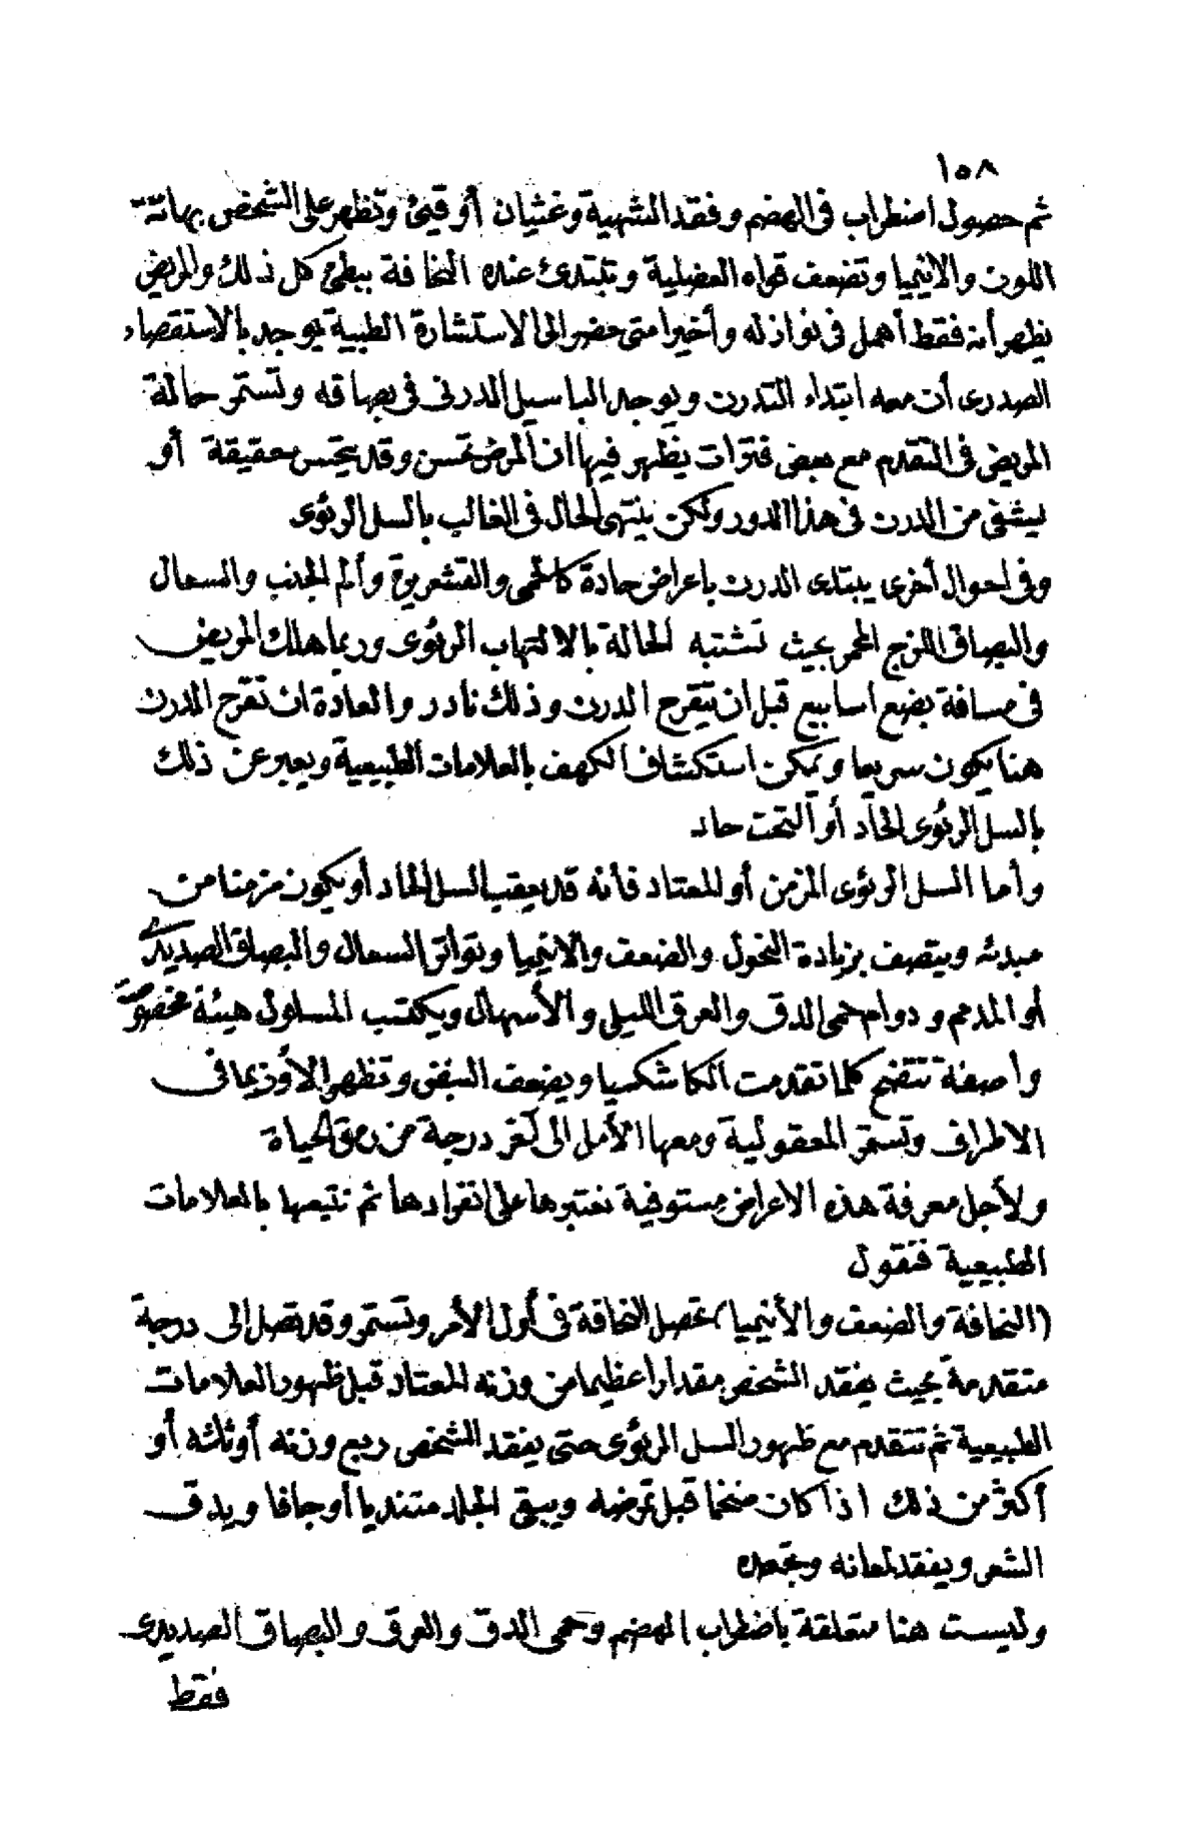 ١٥٨
ثم حصول اضطراب فى الهضم وفقد الشهية وغثيان أو قيئ وتظهر على الشخص بهاتة
اللون والانيميا وتضعف قواه العضلية وتبتدئ عنده النحافة ببطئ كل ذلك والمريض
يظهر أنه فقط أهمل فى نوازله وأخيرا متى حضر الى الاستشارة الطبية يوجد بالاستقصاء
الصدرى أن معه ابتداء التدرن ويوجد الباسيل الدرنى فى بصاقه وتستمر حالة
المريض فى التقدم مع بعض فترات يظهر فيها ان المرض تحسن وقد يتحسن حقيقة أو
يشفى من الدرن فى هذا الدور ولكن ينتهى الحال فى الغالب بالسل الرئوى
وفى احوال أخرى يبتدى الدرن باعراض حادة كالحمى والقشعريرة وألم الجنب والسعال
والبصاق اللزج المحمر بحيث تشتبه الحالة بالالتهاب الرئوى وربما هلك المريض
فى مسافة بضع اسابيع قبل ان يتقرح الدرن وذلك نادر والعادة ان تقرح الدرن
هنا يكون سريعا ويمكن استكشاف الكهف بالعلامات الطبيعية ويعبر عن ذلك
بالسل الرئوى الحاد أو التحت حاد
وأما السل الرئوى المزمن أو المعتاد فأنه قد يعقب السل الحاد أو يكون مزمنا من
مبدئه ويتصف بزيادة النحول والضعف والانيميا وتواتر السعال والبصاق الصديدى
أو المدمم ودوام حمى الدق والعرق الليلى والأسهال ويكتسب المسلول هيئة مخصوصة
واصفة تتضح كلما تقدمت الكاشكسيا ويضعف النبض وتظهر الأوزيما فى
الاطراف وتستمر المعقولية ومعها الأمل الى آخر درجة من رمق الحياة
ولأجل معرفة هذه الاعراض مستوفية نعتبرها على انفرادها ثم نتبعها بالعلامات
الطبيعية فنقول
(النحافة والضعف والأنيميا) تحصل النحافة فى أول الأمر وتستمر وقد تصل الى درجة
متقدمة بحيث يفقد الشخص مقدارا عظيما من وزنه المعتاد قبل ظهور العلامات
الطبيعية ثم تتقدم مع ظهور السل الرئوى حتى يفقد الشخص ربع وزنه أو ثلثه أو
أكثر من ذلك اذا كان ضخما قبل تمرضه ويبقى الجلد متنديا أو جافا ويدق
الشعر ويفقد لمعانه وتجعده
وليست هنا متعلقة باضطراب الهضم وحمى الدق والعرق والبصاق الصديدى
فقط